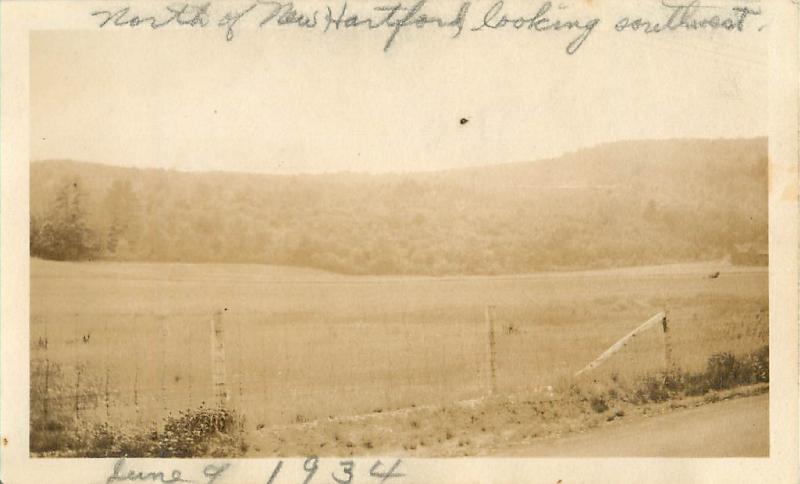 North of New Hartford, looking southwest.
June 9 1934